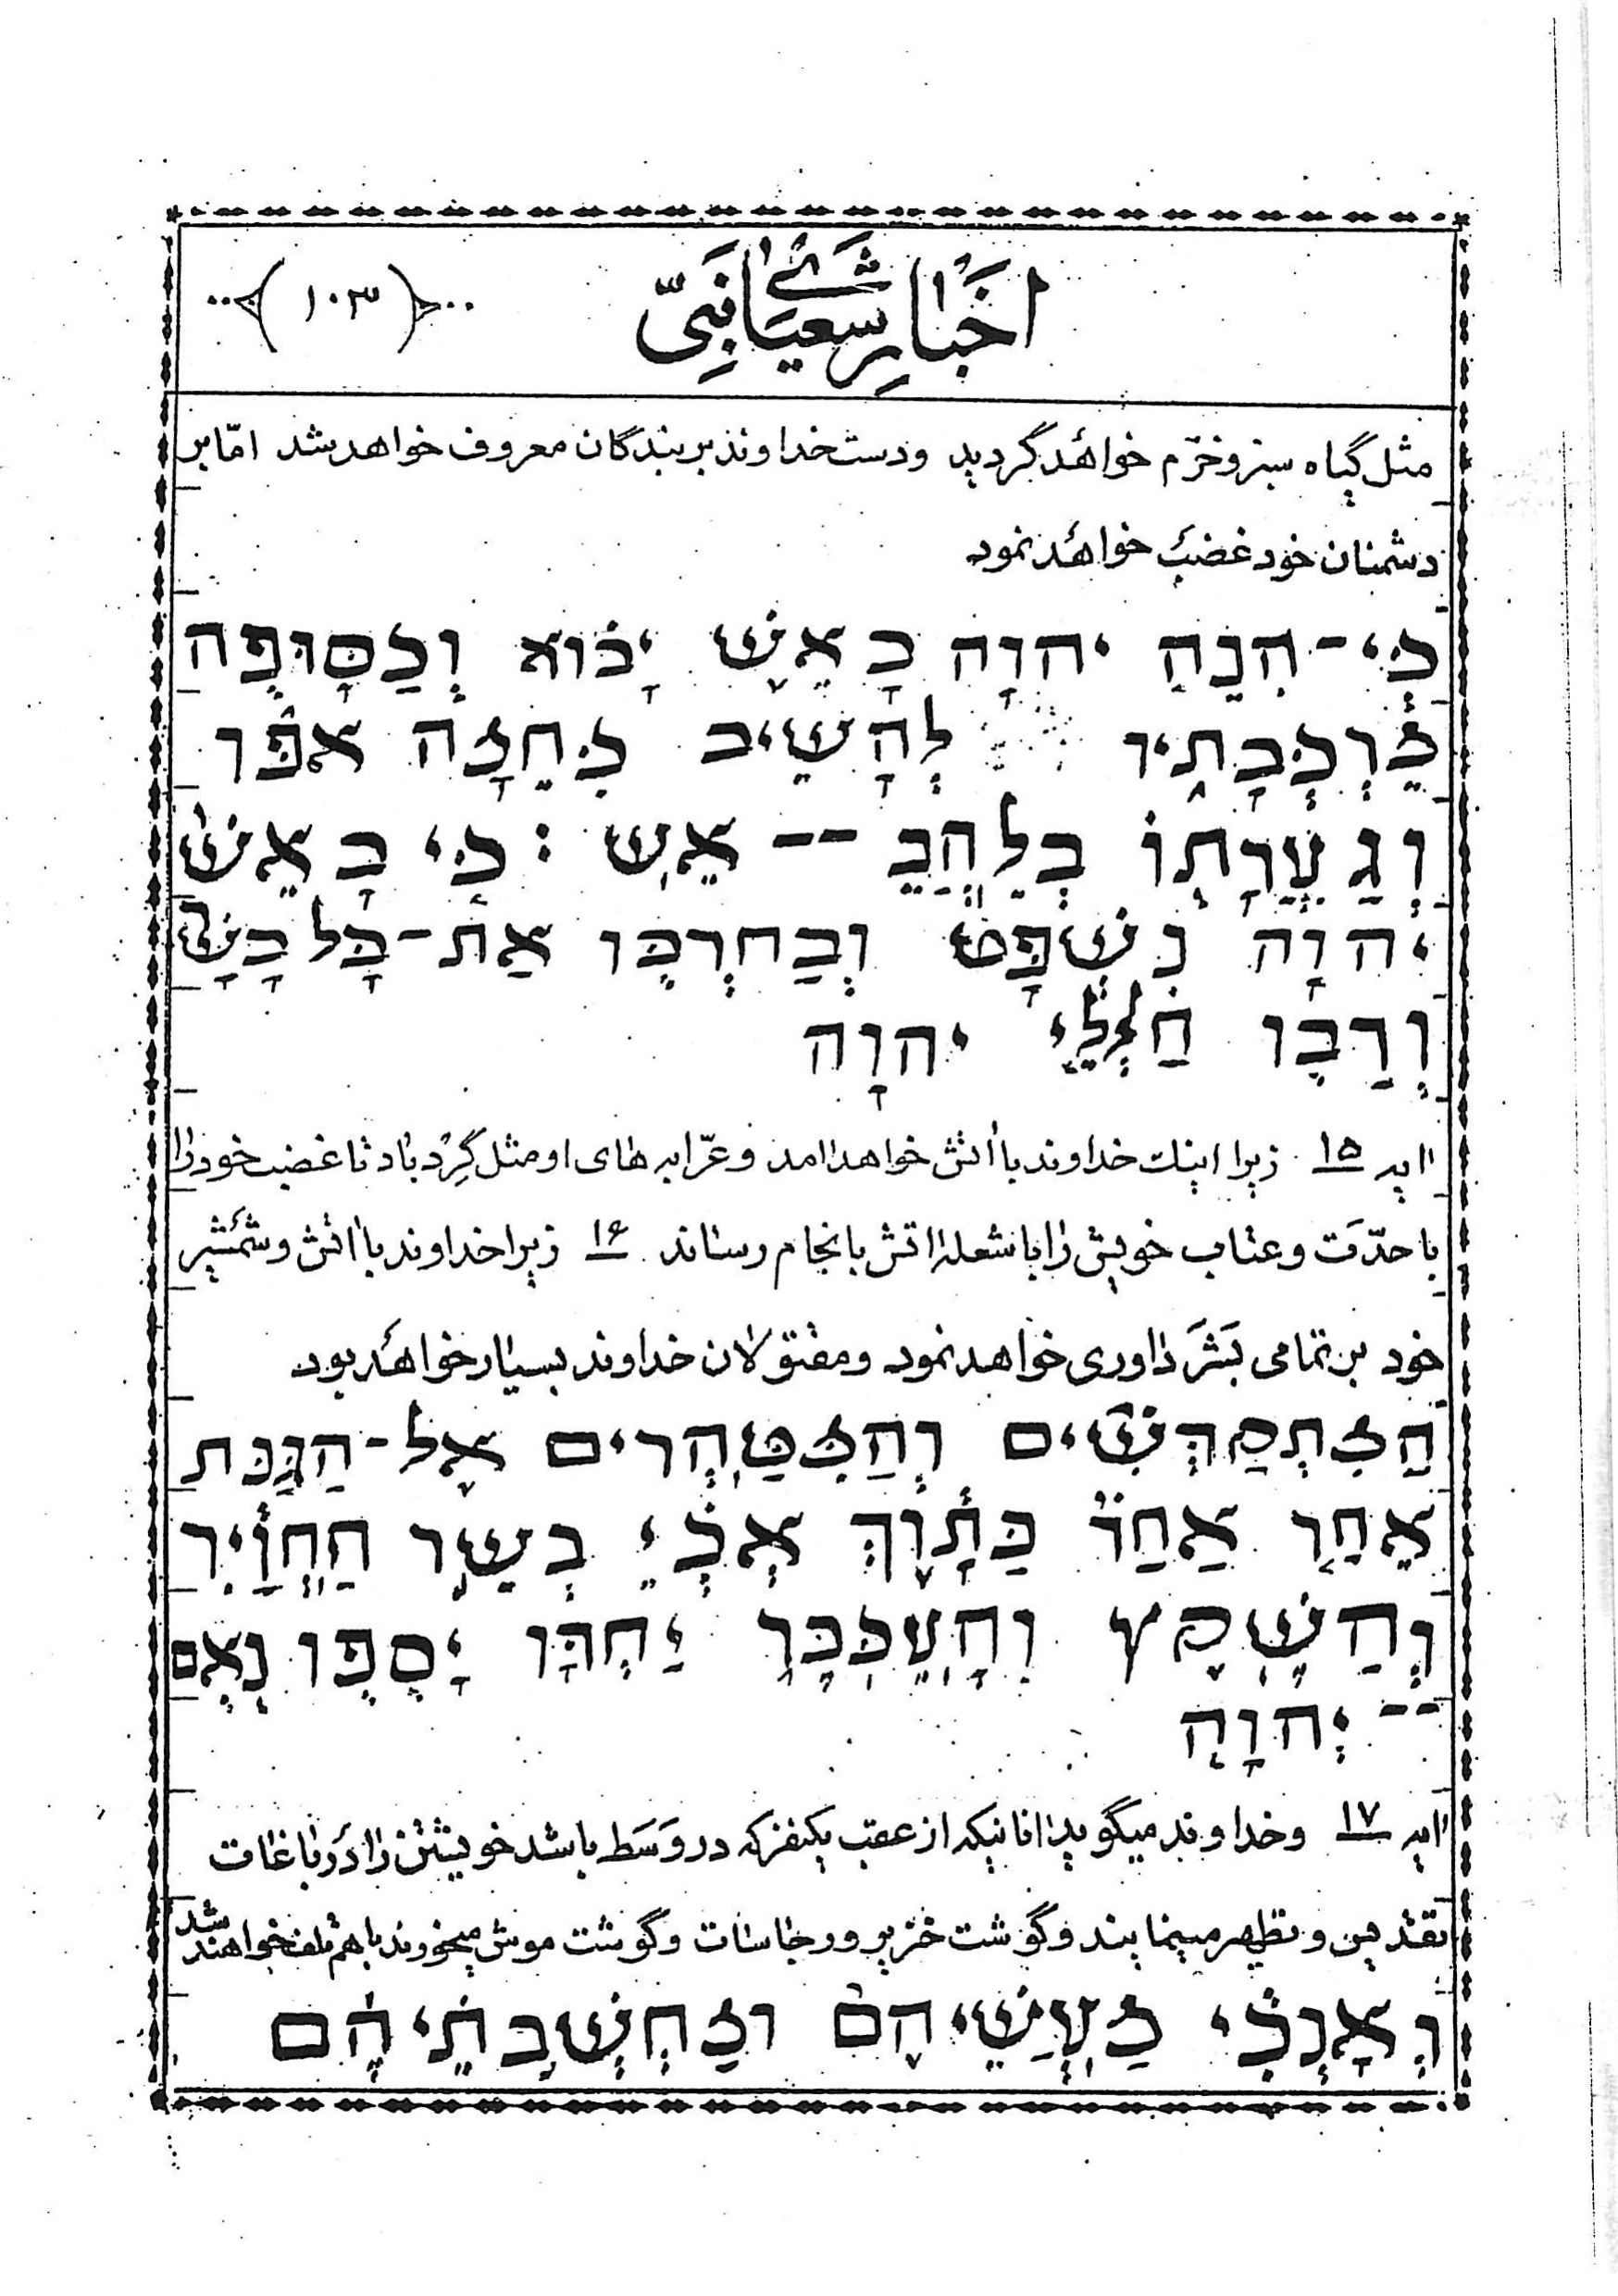 اخبار شعیا نبیّ
(۱۰۳)
مثل گیاه سبز و خرّم خواهد گردید و دست خداوند بر بندگان معروف خواهد شد امّا بر
دشمنان خود غضب خواهد نمود
כִּי־הִנֵּה יהוָה בָּאֵשׁ יָבוֹא וְכַסּוּפָה
מַרְכְּבֹתָיו לְהָשִׁיב בְּחֵמָה אַפּוֹ
וְגַעֲרָתוֹ בְּלַהֲבֵי -- אֵשׁ : כִּי בָאֵשׁ
יְהוָה נִשְׁפָּט וְבְחַרְבּוֹ אֶת־כָּל בָּשָׂ
וְרַבּוּ חַלְלֵי יהוָה
اایه ۱۵ زیرا اینک خداوند با اتش خواهد امد و عرّابه های او مثل گِردباد تا غضب خود را
با حدّت و عتاب خویش را با شعلهٔ اتش بانجام رساند ۱۶ زیرا خداوند با اتش و شمشیر
خود بر تمامی بَشَر داوری خواهد نمود و مقتولان خداوند بسیار خواهد بود
הַמִּתְקַדְּשִׁים וְהַמִּטַּהֲרִים אֶל־הַגַּנֹּת
אַחַר אַחַד בַּתָּוֶךְ אֹכְלֵי בְּשַׂר הַחֲזִיר
וְהַשֶּׁקֶץ וְהָעַכְבָּר יַחְדָּו יָסֻפוּ נְאֻם
-- יְהוָה
اایه ۱۷ و خداوند میگوید انانیکه از عقب یکنفر که در وَسَط باشد خویشتن را در باغات
تقدیس و تطهیر مینمایند و گوشت خنزیر و رجاسات و گوشت موش میخورند با هم تلف خواهند شد
וְאָנֹכִי מַעֲשֵׂיהֶם וּמַחְשְׁבֹתֵיהֶם